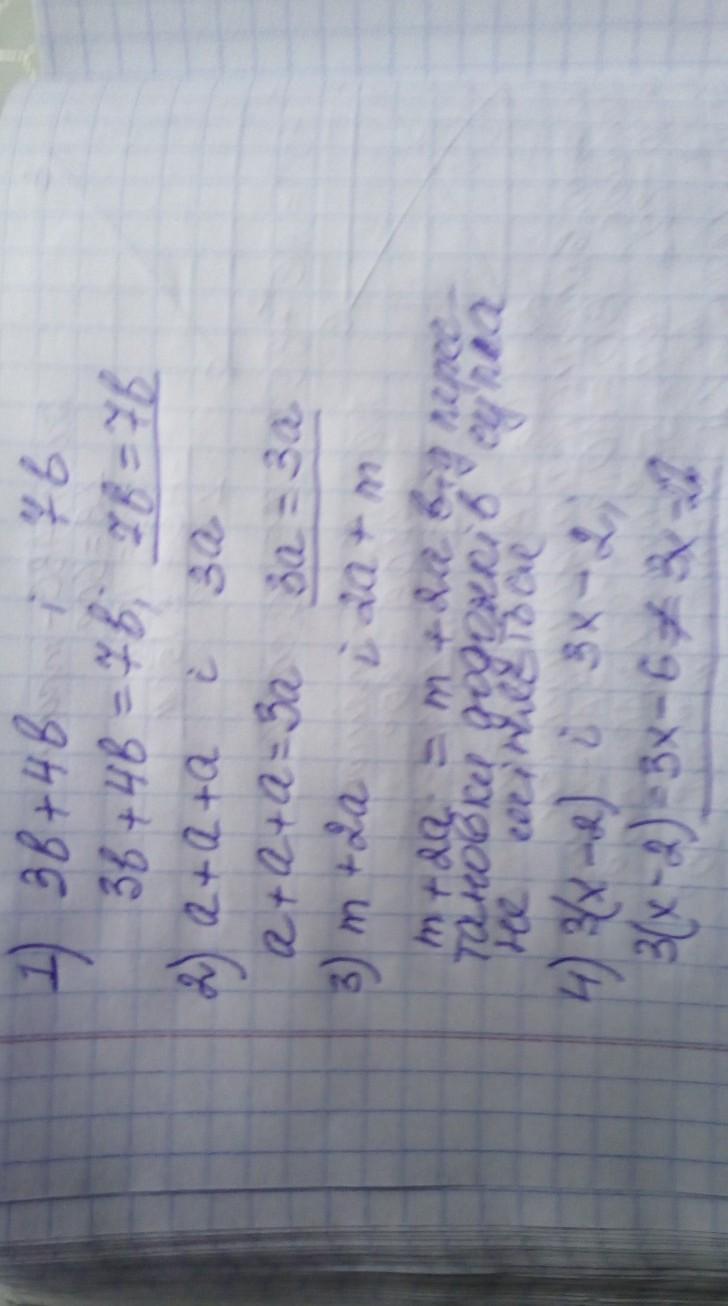 1) 3b+4b i 7b
3b+4b=7b; 7b=7b
2) a+a+a i 3a
a+a+a=3a 3a=3a
3) m+2a i 2a+m
m+2a = m+2a від перес-
тановки доданків сума
не
4) 3(x-2) i 3x-2;
3(x-2)=3x-6≠3x-2